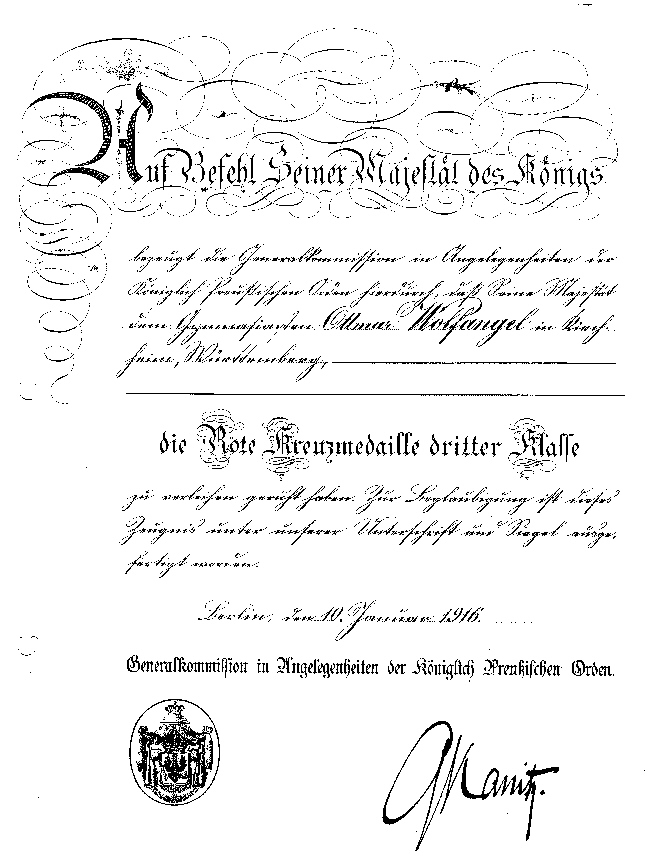 Auf Befehl Seiner Majestät des Königs
bezeugt die Generalkommission in Angelegenheiten der
Königlich Preußischen Orden hierdurch, daß Seine Majestät
dem Gymnasiasten Ottmar Wolfangel in Kirch-
heim, Württemberg,
die Rote Kreuzmedaille dritter Klasse
zu verleihen geruht haben. Zur Beglaubigung ist dieses
Zeugnis unter unserer Unterschrift und Siegel ausge-
fertigt worden.
Berlin, den 10. Januar 1916.
Generalkommission in Angelegenheiten der Königlich Preußischen Orden.
Kanitz.